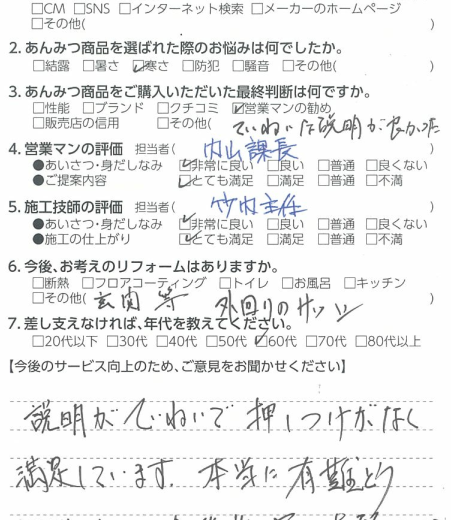 □CM □SNS □インターネット検索 □メーカーのホームページ
□その他( )
2. あんみつ商品を選ばれた際のお悩みは何でしたか。
□結露 □暑さ ☑寒さ □防犯 □騒音 □その他( )
3. あんみつ商品をご購入いただいた最終判断は何ですか。
□性能 □ブランド □クチコミ ☑営業マンの勧め
□販売店の信用 □その他( ていねいな説明が良かった
4. 営業マンの評価 担当者( 内山課長
●あいさつ・身だしなみ ☑非常に良い □良い □普通 □良くない
●ご提案内容 ☑とても満足 □満足 □普通 □不満
5. 施工技師の評価 担当者( 竹内主任
●あいさつ・身だしなみ ☑非常に良い □良い □普通 □良くない
●施工の仕上がり ☑とても満足 □満足 □普通 □不満
6. 今後、お考えのリフォームはありますか。
□断熱 □フロアコーティング □トイレ □お風呂 □キッチン
□その他( 玄関等 外回りのサッシ )
7. 差し支えなければ、年代を教えてください。
□20代以下 □30代 □40代 □50代 ☑60代 □70代 □80代以上
【今後のサービス向上のため、ご意見をお聞かせください】
説明がていねいで押しつけがなく
満足しています。本当に有難とう